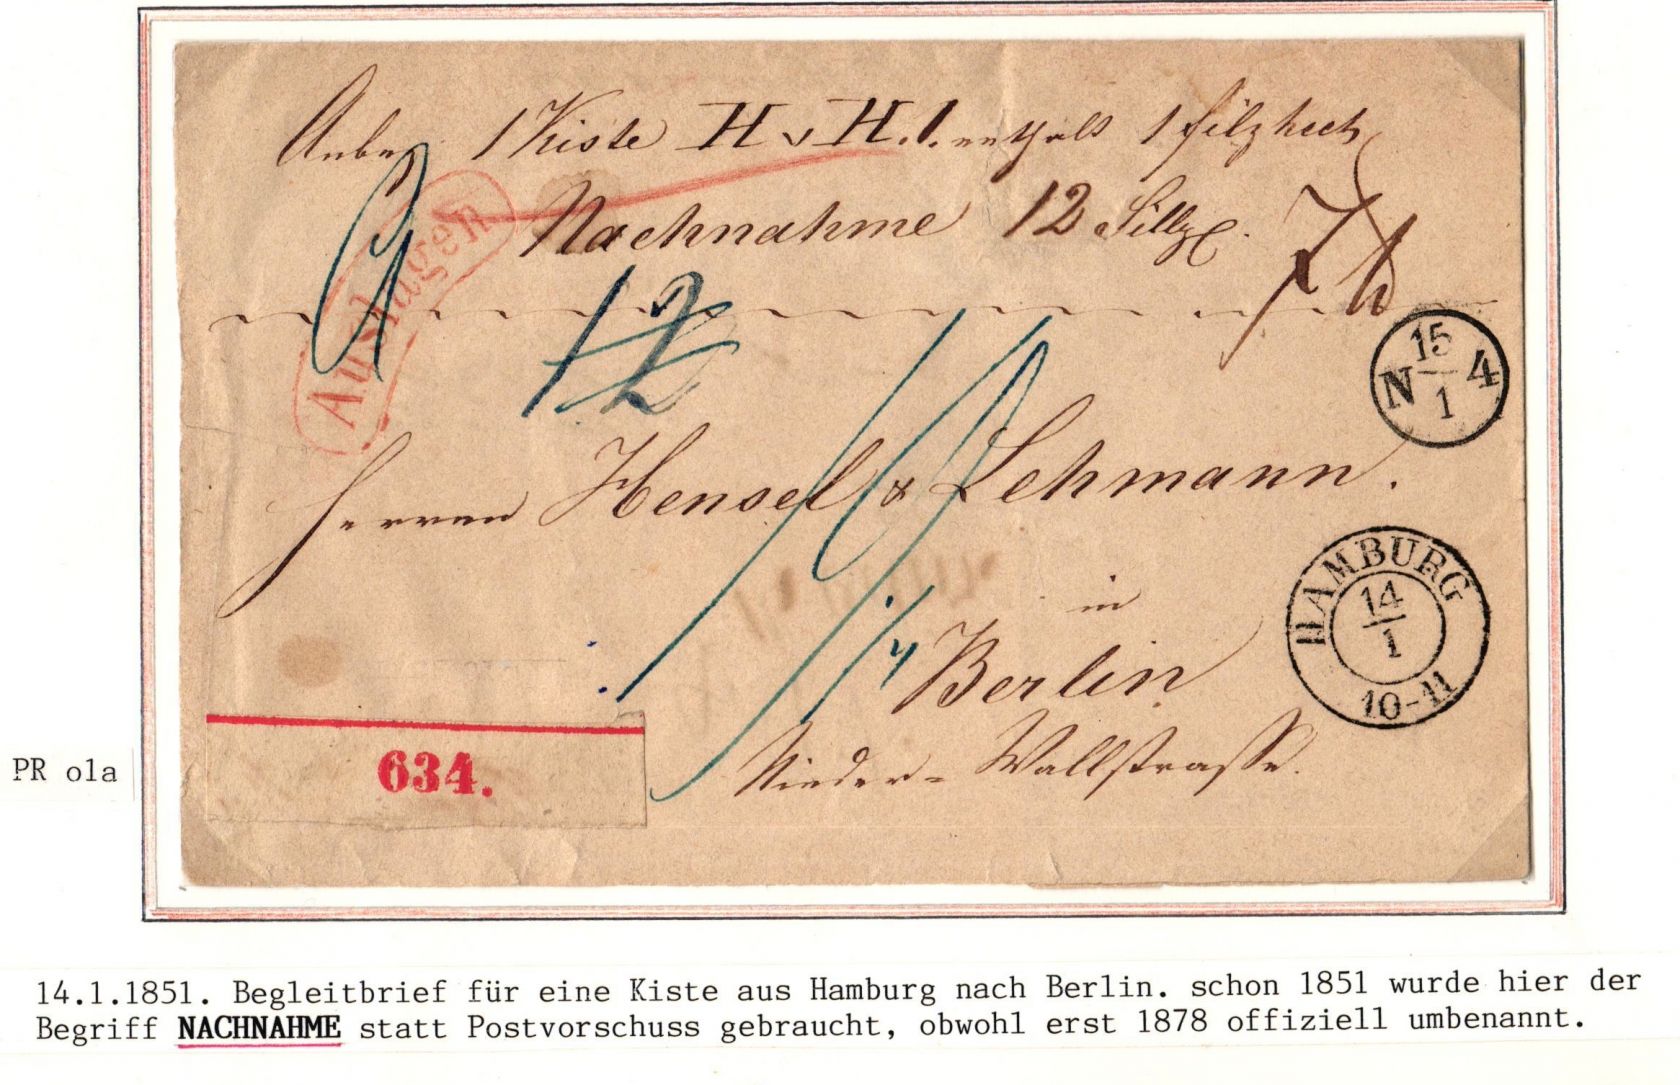 Anbei 1 Kiste H v H. 1. enthält 1 filzhech
Nachnahme 12 Sillg.
Auslagen
12
15
N 4
1
Herren Hensel & Lehmann.
in
Berlin
Nieder-Wallstrasse.
HAMBURG
14
1
10-11
634.
PR o1a
14.1.1851. Begleitbrief für eine Kiste aus Hamburg nach Berlin. schon 1851 wurde hier der
Begriff NACHNAHME statt Postvorschuss gebraucht, obwohl erst 1878 offiziell umbenannt.